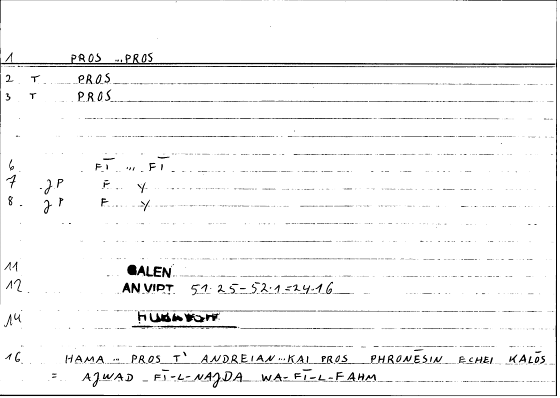 1 PROS ... PROS
2 T PROS
3 T PROS
6 FĪ ... FĪ
7 gP F Y
8 gP F Y
11 GALEN
12 AN VIRT 51.25-52.1=24.16
14
16 HAMA ... PROS T' ANDREIAN ... KAI PROS PHRONĒSIN ECHEI KALŌS
= AǧWAD FĪ-L-NAǧDA WA-FĪ-L-FAHM